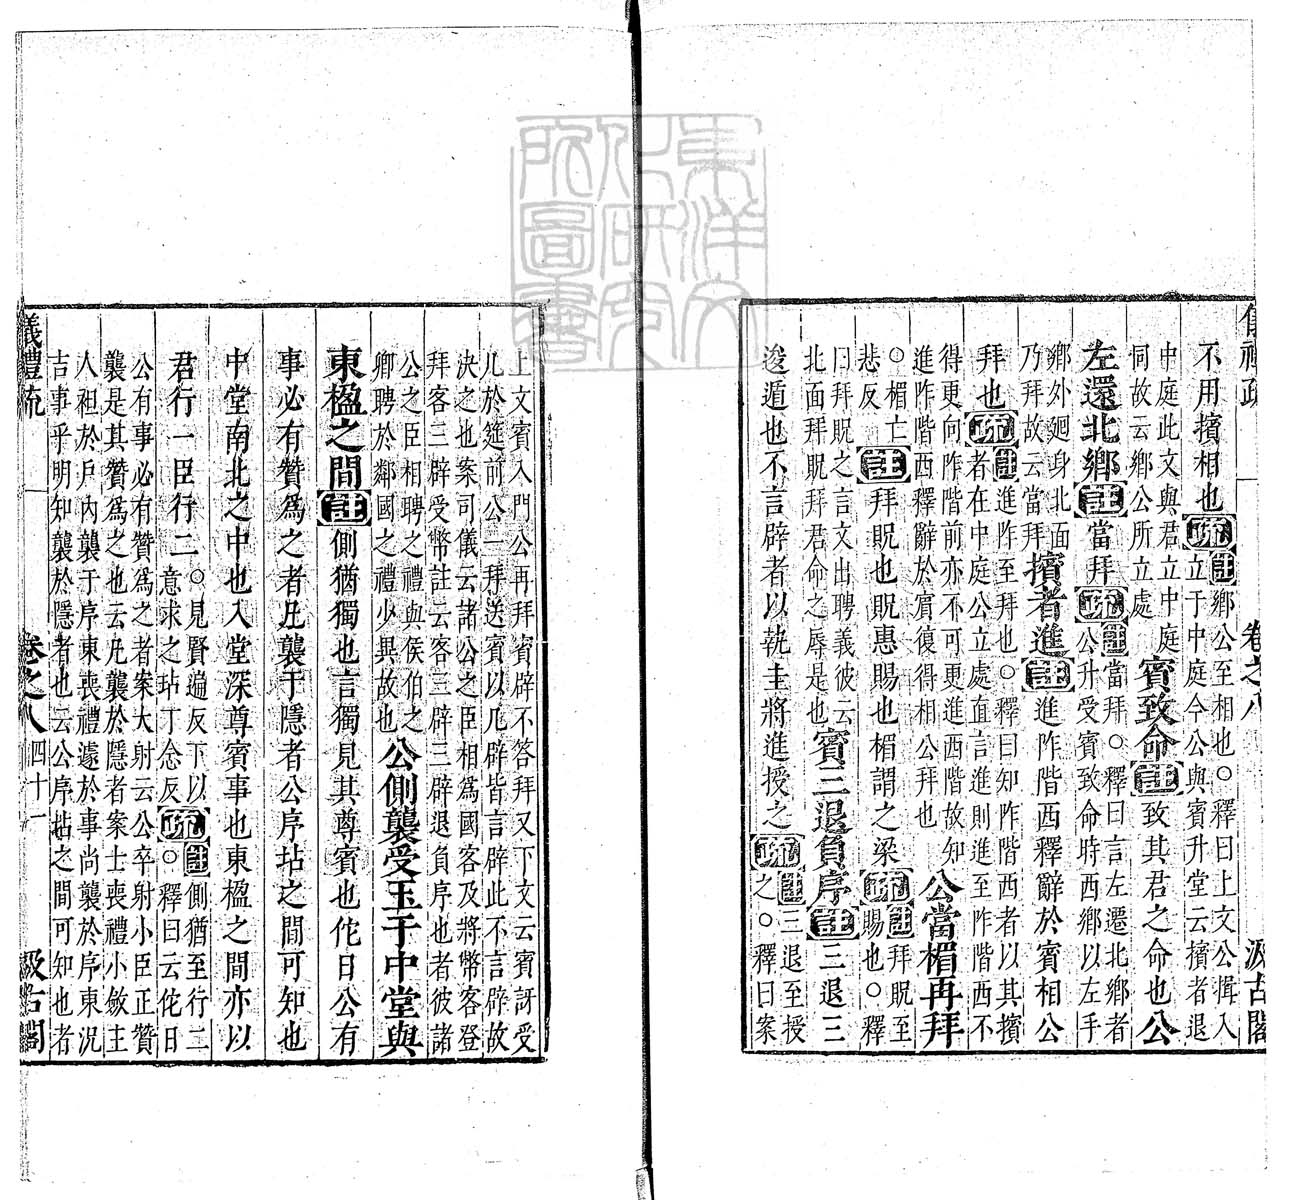 儀禮疏 卷之八 汲古閣
不用擯相也疏註鄉公至相也○釋曰上文公揖入
立于中庭今公與賓升堂云擯者退
中庭此文與君立中庭
同故云鄉公所立處
賓致命註致其君之命也公
左還北鄉註當拜疏註當拜○釋曰言左還北鄉者
公升受賓致命時西鄉以左手
鄉外廻身北面
乃拜故云當拜
擯者進註進阼階西釋辭於賓相公
拜也疏註進阼至拜也○釋曰知阼階西者以其擯
者在中庭公立處直言進則進至阼階西不
得更向阼階前亦不可更進西階故知
進阼階西釋辭於賓復得相公拜也
公當楣再拜
○楣亡
悲反
註拜貺也貺惠賜也楣謂之梁疏註拜貺至
賜也○釋
曰拜貺之言文出聘義彼云
北面拜貺拜君命之辱是也
賓三退負序註三退三
逡遁也不言辟者以執圭將進授之疏註三退至授
之○釋曰案
上文賓入門公再拜賓辟不答拜又下文云賓訝受
几於筵前公一拜送賓以几辟皆言辟此不言辟故
決之也案司儀云諸公之臣相爲國客及將幣客登
拜客三辟受幣註云客三辟三辟退負序也者彼諸
公之臣相聘之禮與侯伯之
卿聘於鄰國之禮少異故也
公側襲受玉于中堂與
東楹之間註側猶獨也言獨見其尊賓也佗日公有
事必有贊爲之者凡襲于隱者公序坫之間可知也
中堂南北之中也入堂深尊賓事也東楹之間亦以
君行一臣行二○見賢遍反下以
意求之坫丁念反
疏註側猶至行二
○釋曰云佗日
公有事必有贊爲之者案大射云公卒射小臣正贊
襲是其贊爲之也云凡襲於隱者案士喪禮小斂主
人袒於戶內襲于序東喪禮遽於事尚襲於序東況
吉事乎明知襲於隱者也云公序坫之間可知也者
儀禮疏 卷之八 四十一 汲古閣
東洋文化研究所圖書